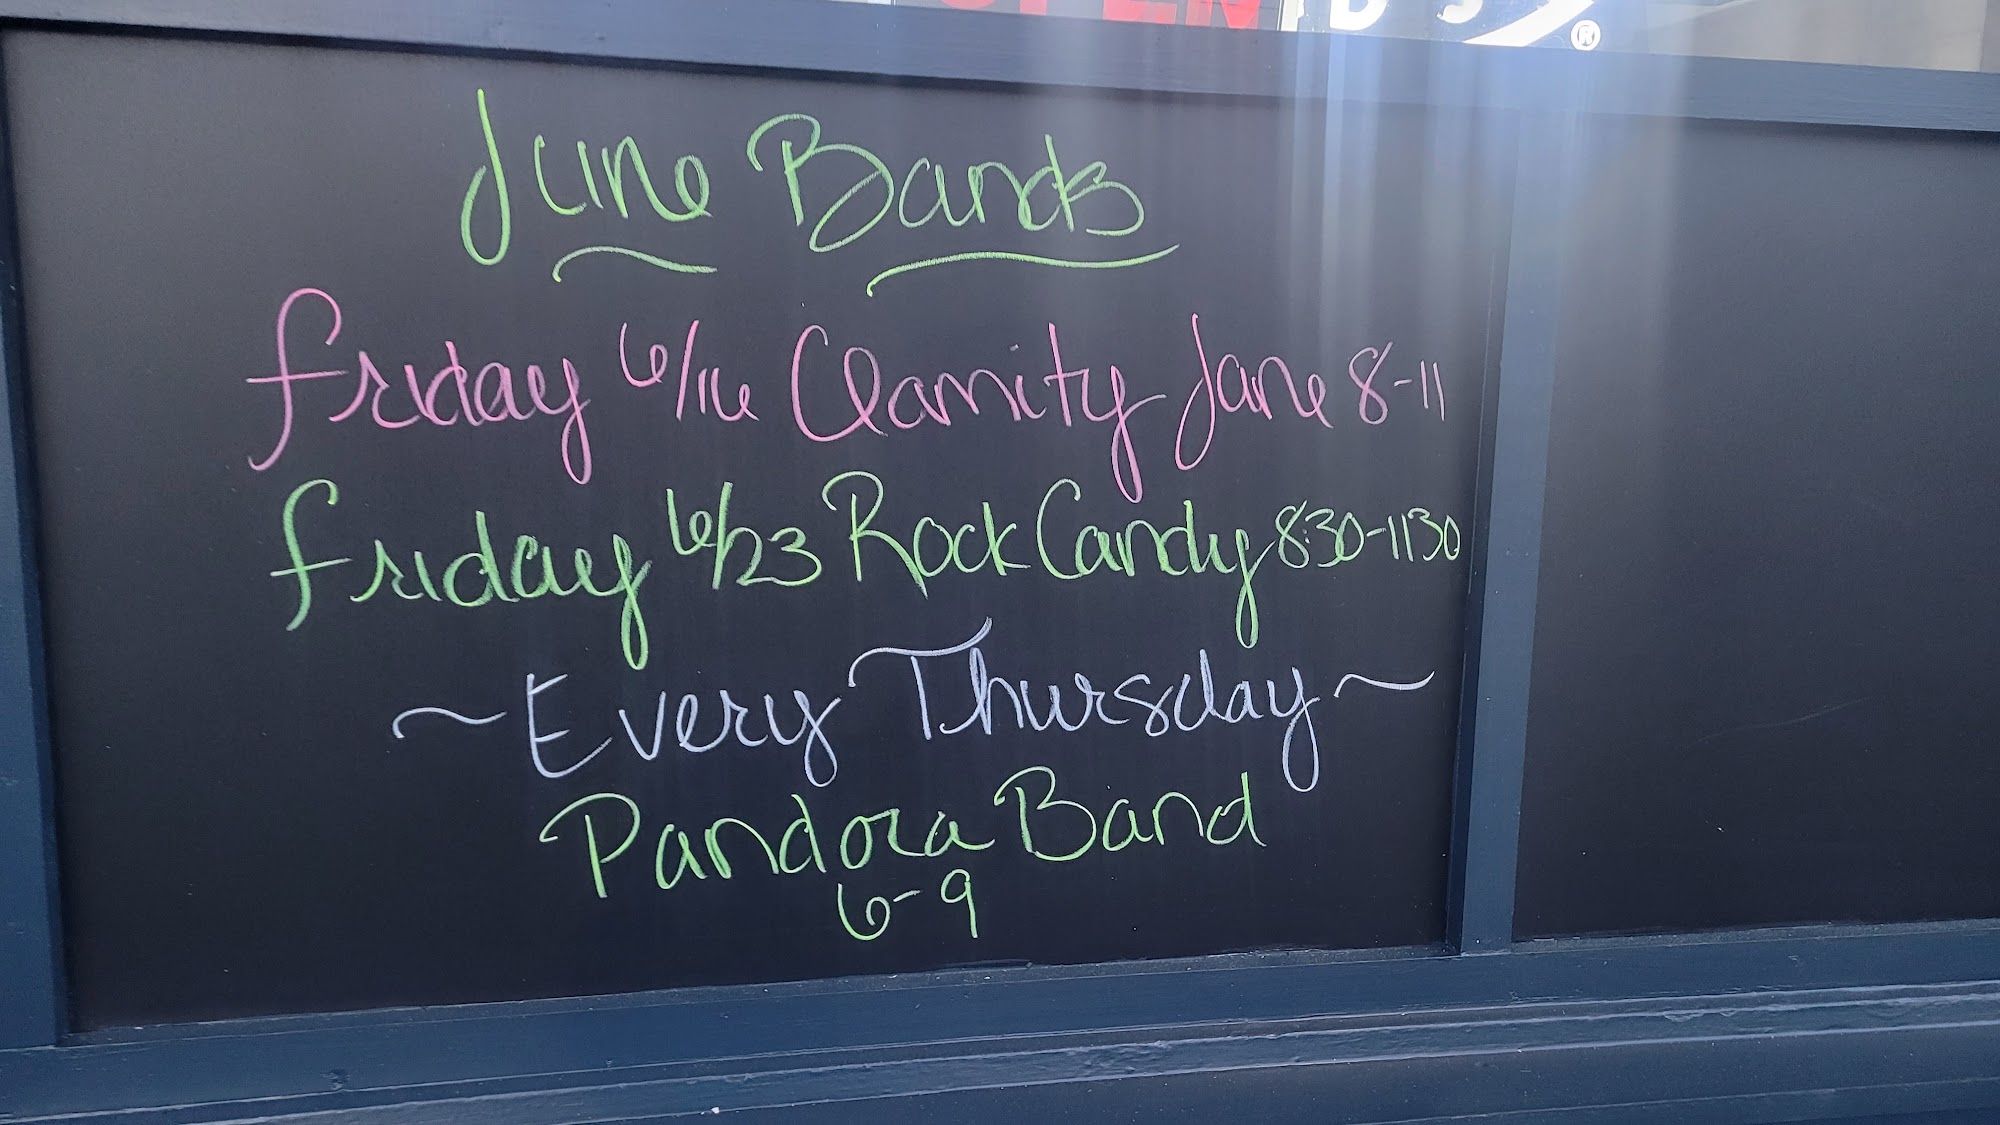 OPEN
June Bands
Friday 6/16 Clamity Jane 8-11
Friday 6/23 Rock Candy 8:30-1130
~Every Thursday~
Pandora Band
6-9